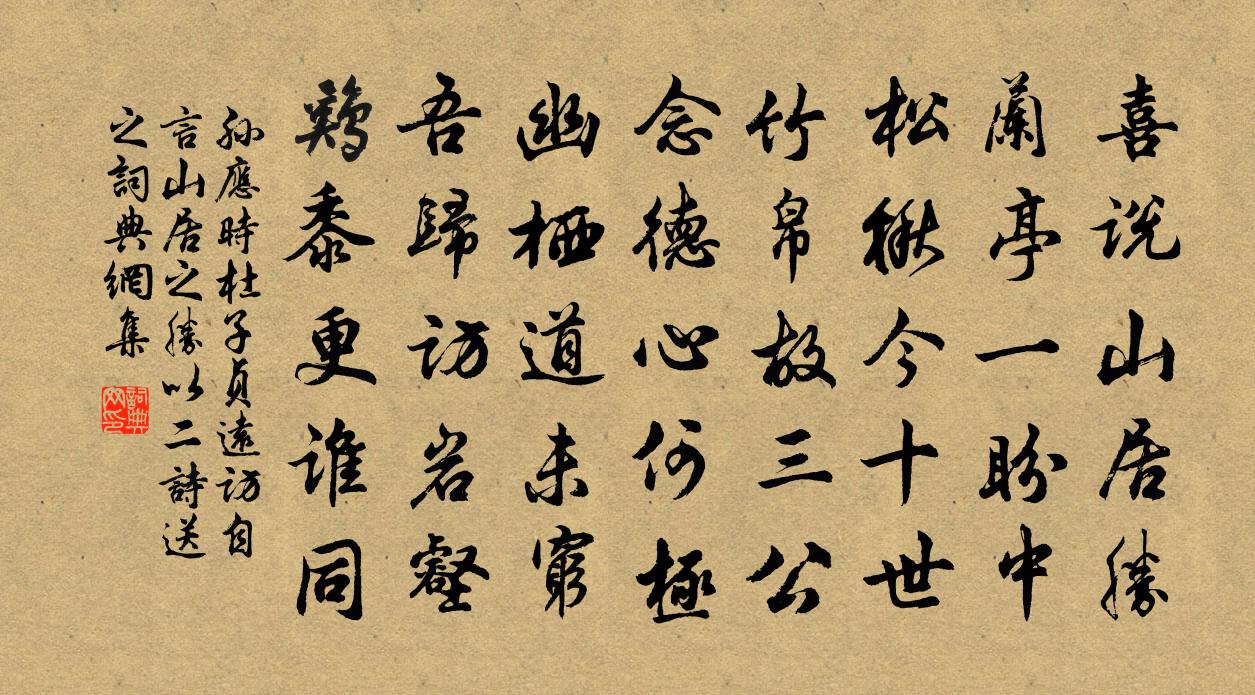 喜說山居勝
蘭亭一盼中
松楸今十世
竹帛故三公
念德心何極
幽栖道未窮
吾歸訪岩壑
鷄黍更誰同
孫應時杜子貞遠訪自
言山居之勝以二詩送
之詞典網集
詞典網印